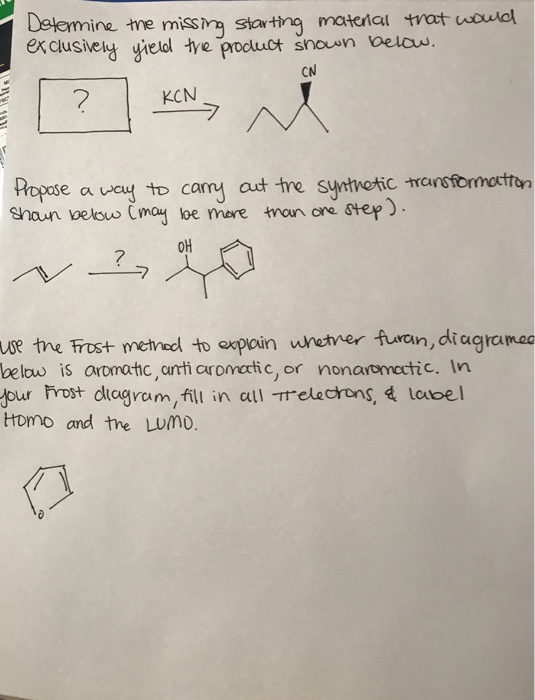 Determine the missing starting material that would
exclusively yield the product shown below.
CN
? KCN
Propose a way to carry out the synthetic transformation
shown below (may be more than one step).
OH
?
use the Frost method to explain whether furan, diagramed
below is aromatic, antiaromatic, or nonaromatic. In
your Frost diagram, fill in all π electrons, & label
Homo and the LUMO.
O